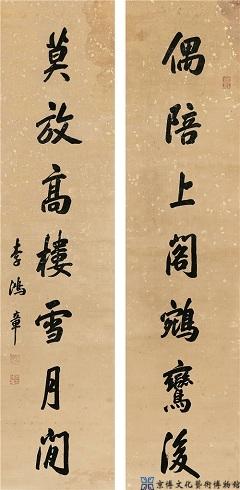 偶陪上阁鵷鸞後
莫放高樓雪月間
李鴻章
京博文化藝術博物館